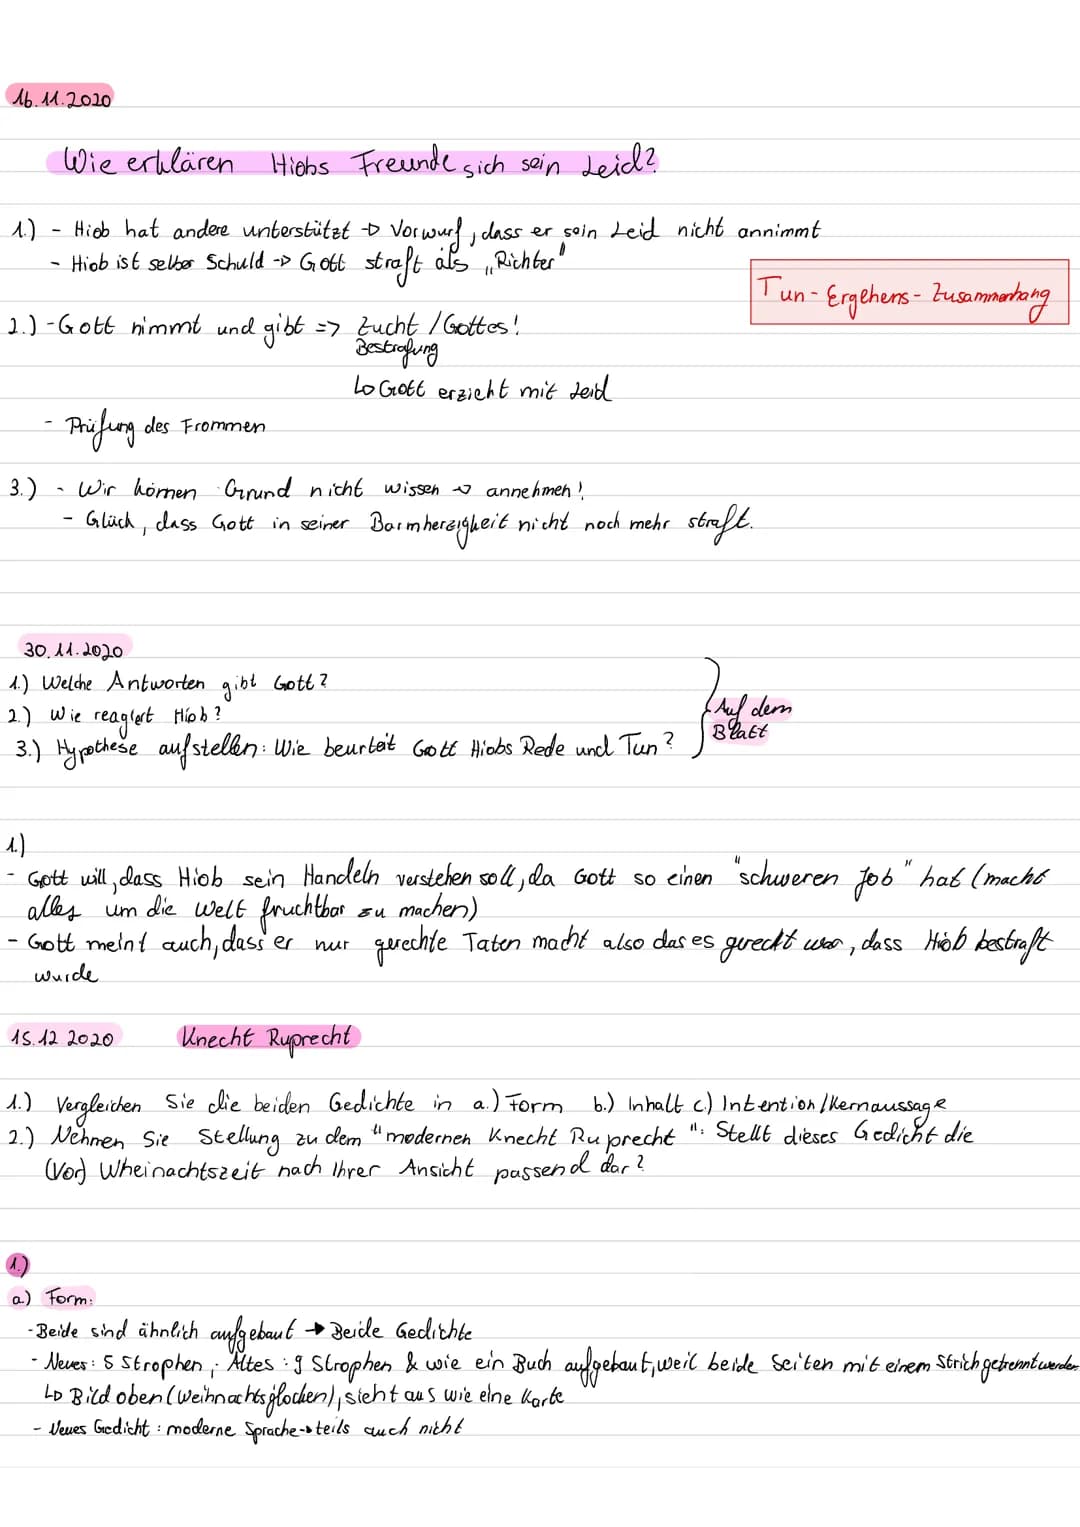 16.11.2020
Wie erklären Hiobs Freunde sich sein Leid?
1.) - Hiob hat andere unterstützt → Vorwurf, dass er sein Leid nicht annimmt
- Hiob ist selber Schuld -> Gott straft als „Richter"
Tun-Ergehens-Zusammenhang
2.) - Gott nimmt und gibt => Zucht / Gottes!
Bestrafung
↳ Gott erzieht mit Leid
- Prüfung des Frommen
3.) - Wir können Grund nicht wissen → annehmen!
- Glück, dass Gott in seiner Barmherzigkeit nicht noch mehr straft.
30.11.2020
1.) Welche Antworten gibt Gott?
2.) Wie reagiert Hiob?
3.) Hypothese aufstellen: Wie beurteit Gott Hiobs Rede und Tun?
Auf dem
Blatt
1.)
- Gott will, dass Hiob sein Handeln verstehen soll, da Gott so einen "schweren Job" hat (macht
alles um die Welt fruchtbar zu machen)
- Gott meint auch, dass er nur gerechte Taten macht also das es gereckt war, dass Hiob bestraft
wurde
15.12 2020 Knecht Ruprecht
1.) Vergleichen Sie die beiden Gedichte in a.) Form b.) Inhalt c.) Intention/Kernaussage
2.) Nehmen Sie Stellung zu dem "modernen Knecht Ruprecht": Stellt dieses Gedicht die
(Vor) Wheinachtszeit nach Ihrer Ansicht passend dar?
1.)
a) Form:
- Beide sind ähnlich aufgebaut → Beide Gedichte
- Neues: 5 Strophen; Altes: 9 Strophen & wie ein Buch aufgebaut, weil beide Seiten mit einem Strich getrennt werden
↳ Bild oben (Weihnachtsglocken), sieht aus wie eine Karte
- Neues Gedicht: moderne Sprache → teils auch nicht